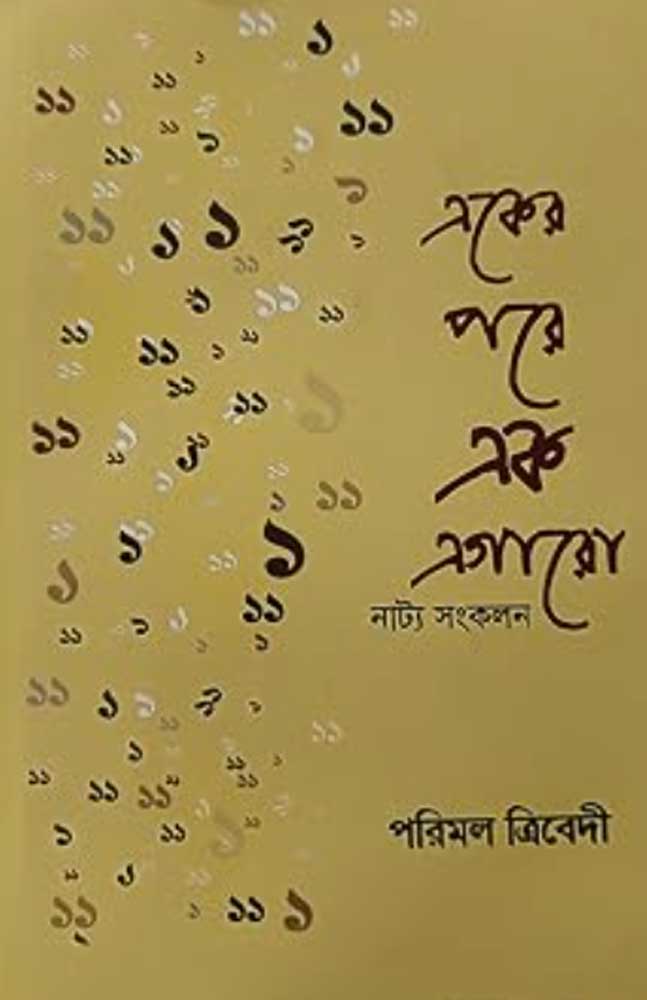 একের
পরে
এক
এগারো
নাট্য সংকলন
পরিমল ত্রিবেদী